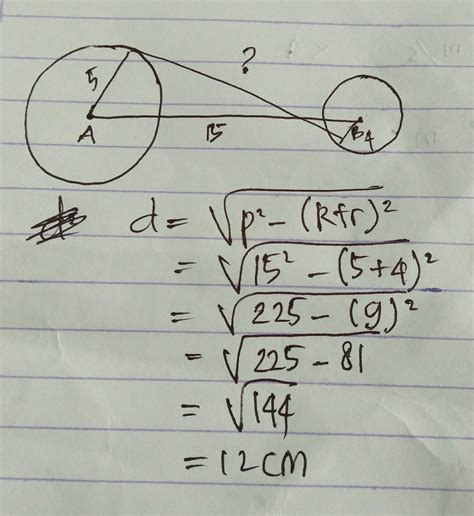 ?
5
A
15
B
4
d = √p² - (R+r)²
= √15² - (5+4)²
= √225 - (9)²
= √225 - 81
= √144
= 12 cm